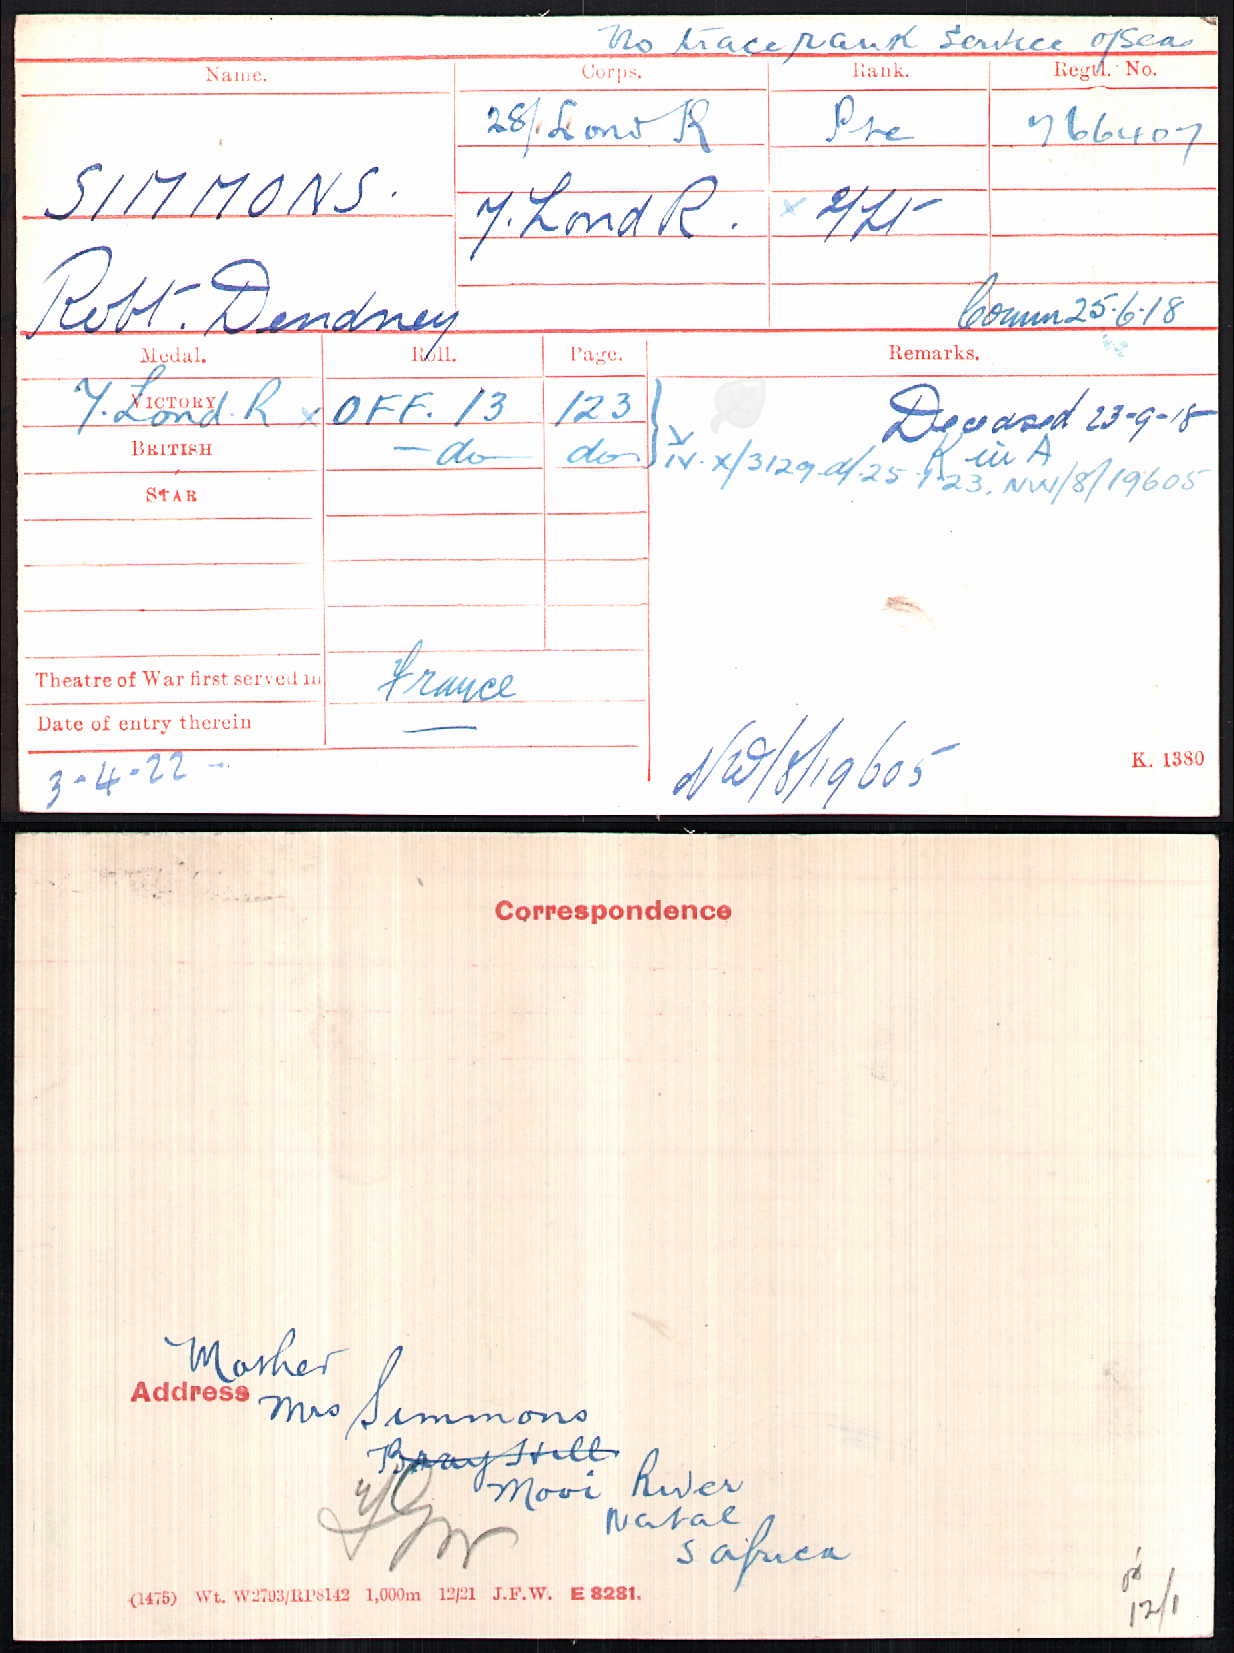 No trace rank service o/seas
Name. Corps. Rank. Regtl. No.
28/. Lond R Pte 766407
SIMMONS. 7. Lond R. x 2/Lt
Robt. Dendney Comm 25.6.18
Medal. Roll. Page. Remarks.
VICTORY 7. Lond. R x OFF. 13 123 Deceased 23-9-18
BRITISH - do do K in A
IV. X/3129. d/. 25.9.23. NW/8/19605
STAR
Theatre of War first served in France
Date of entry therein —
3-4-22 - NW/8/19605 K. 1380
Correspondence
Mother
Address Mrs Simmons
Bray Hill
Mooi River
Natal
S Africa
(1475) Wt. W2793/RP8142 1,000m 12/21 J.F.W. E 8281.
12/1